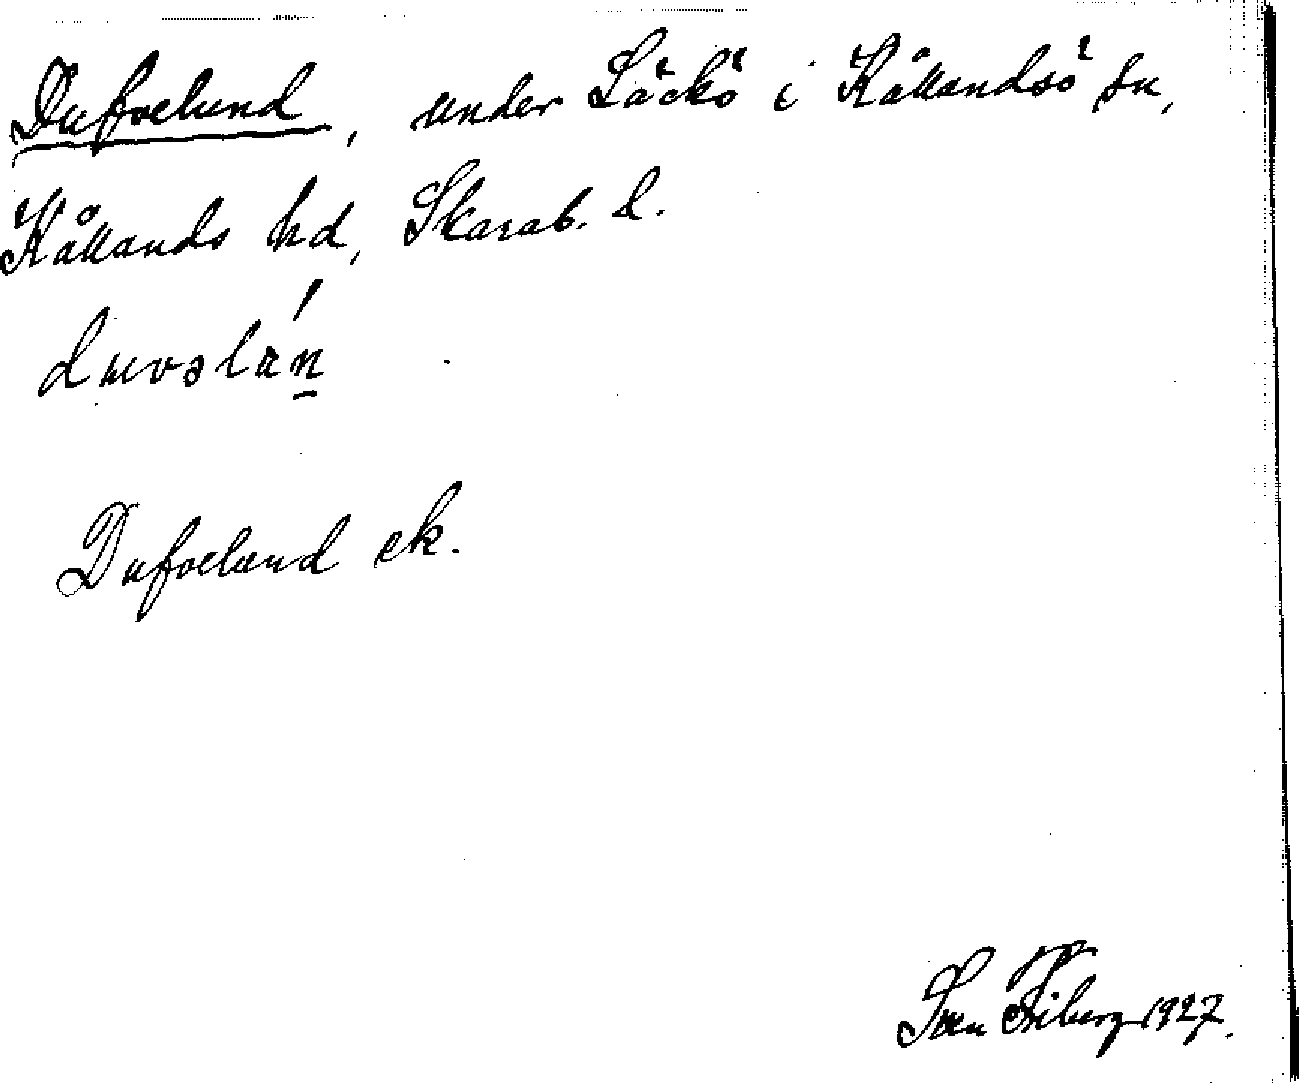 Dufvelund, under Läckö i Kållandsö sn,
Kållands hd, Skarab. l.
duvəlán
Dufvelund ek.
Sven Friberg 1927.